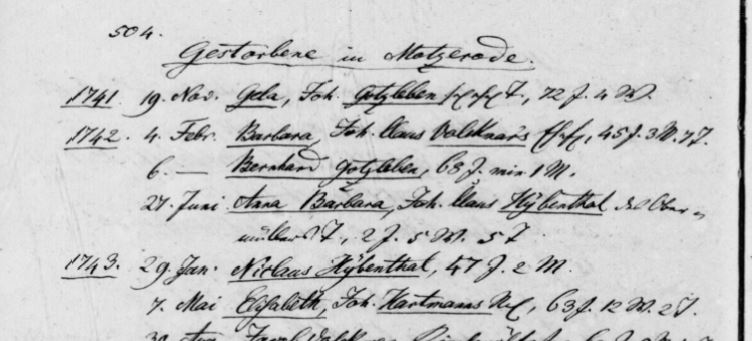 504.
Gestorbene in Motzerode.
1741. 19. Nov. Gela, Joh. Gotzleben T, 72 J. 4 W.
1742. 4. Febr. Barbara, Joh. Claus Valcknars Ehefr, 45 J. 3 M. 7 T.
6. — Bernhard Gotzleben, 68 J. min 1 M.
27. Juni Anna Barbara, Joh. Claus Hÿbenthal des Ober-
müllers T, 2 J. 5 W. 5 T
1743. 29. Jan. Niclaus Hÿbenthal, 47 J. 2 M.
7. Mai Elisabeth, Joh. Hartmanns 63 J. 12 W. 2 T.